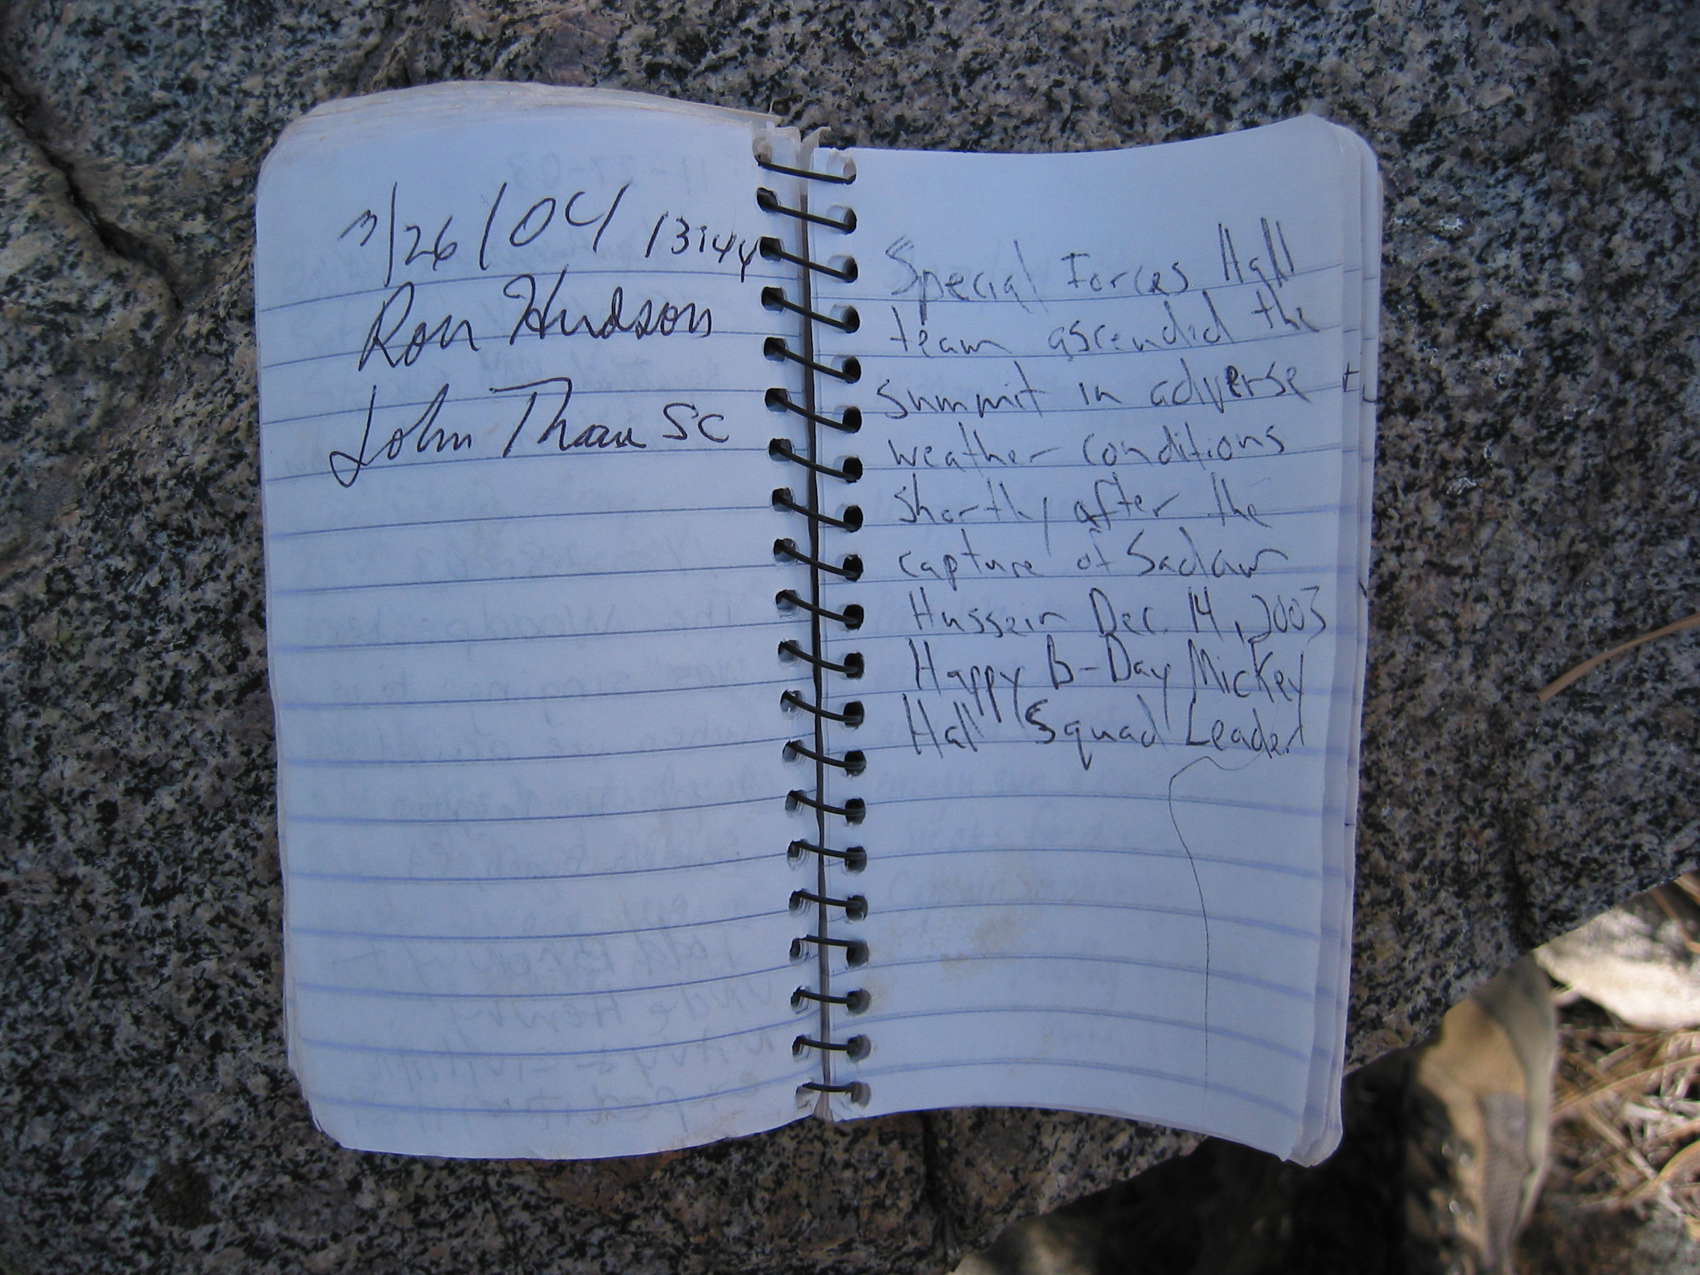 3/26/04 13:44
Ron Hudson
John SC
Special Forces Hall
team ascended the
summit in adverse
weather conditions
shortly after the
capture of Sadam
Hussein Dec. 14, 2003
Happy B-Day Mickey
Hall Squad Leader